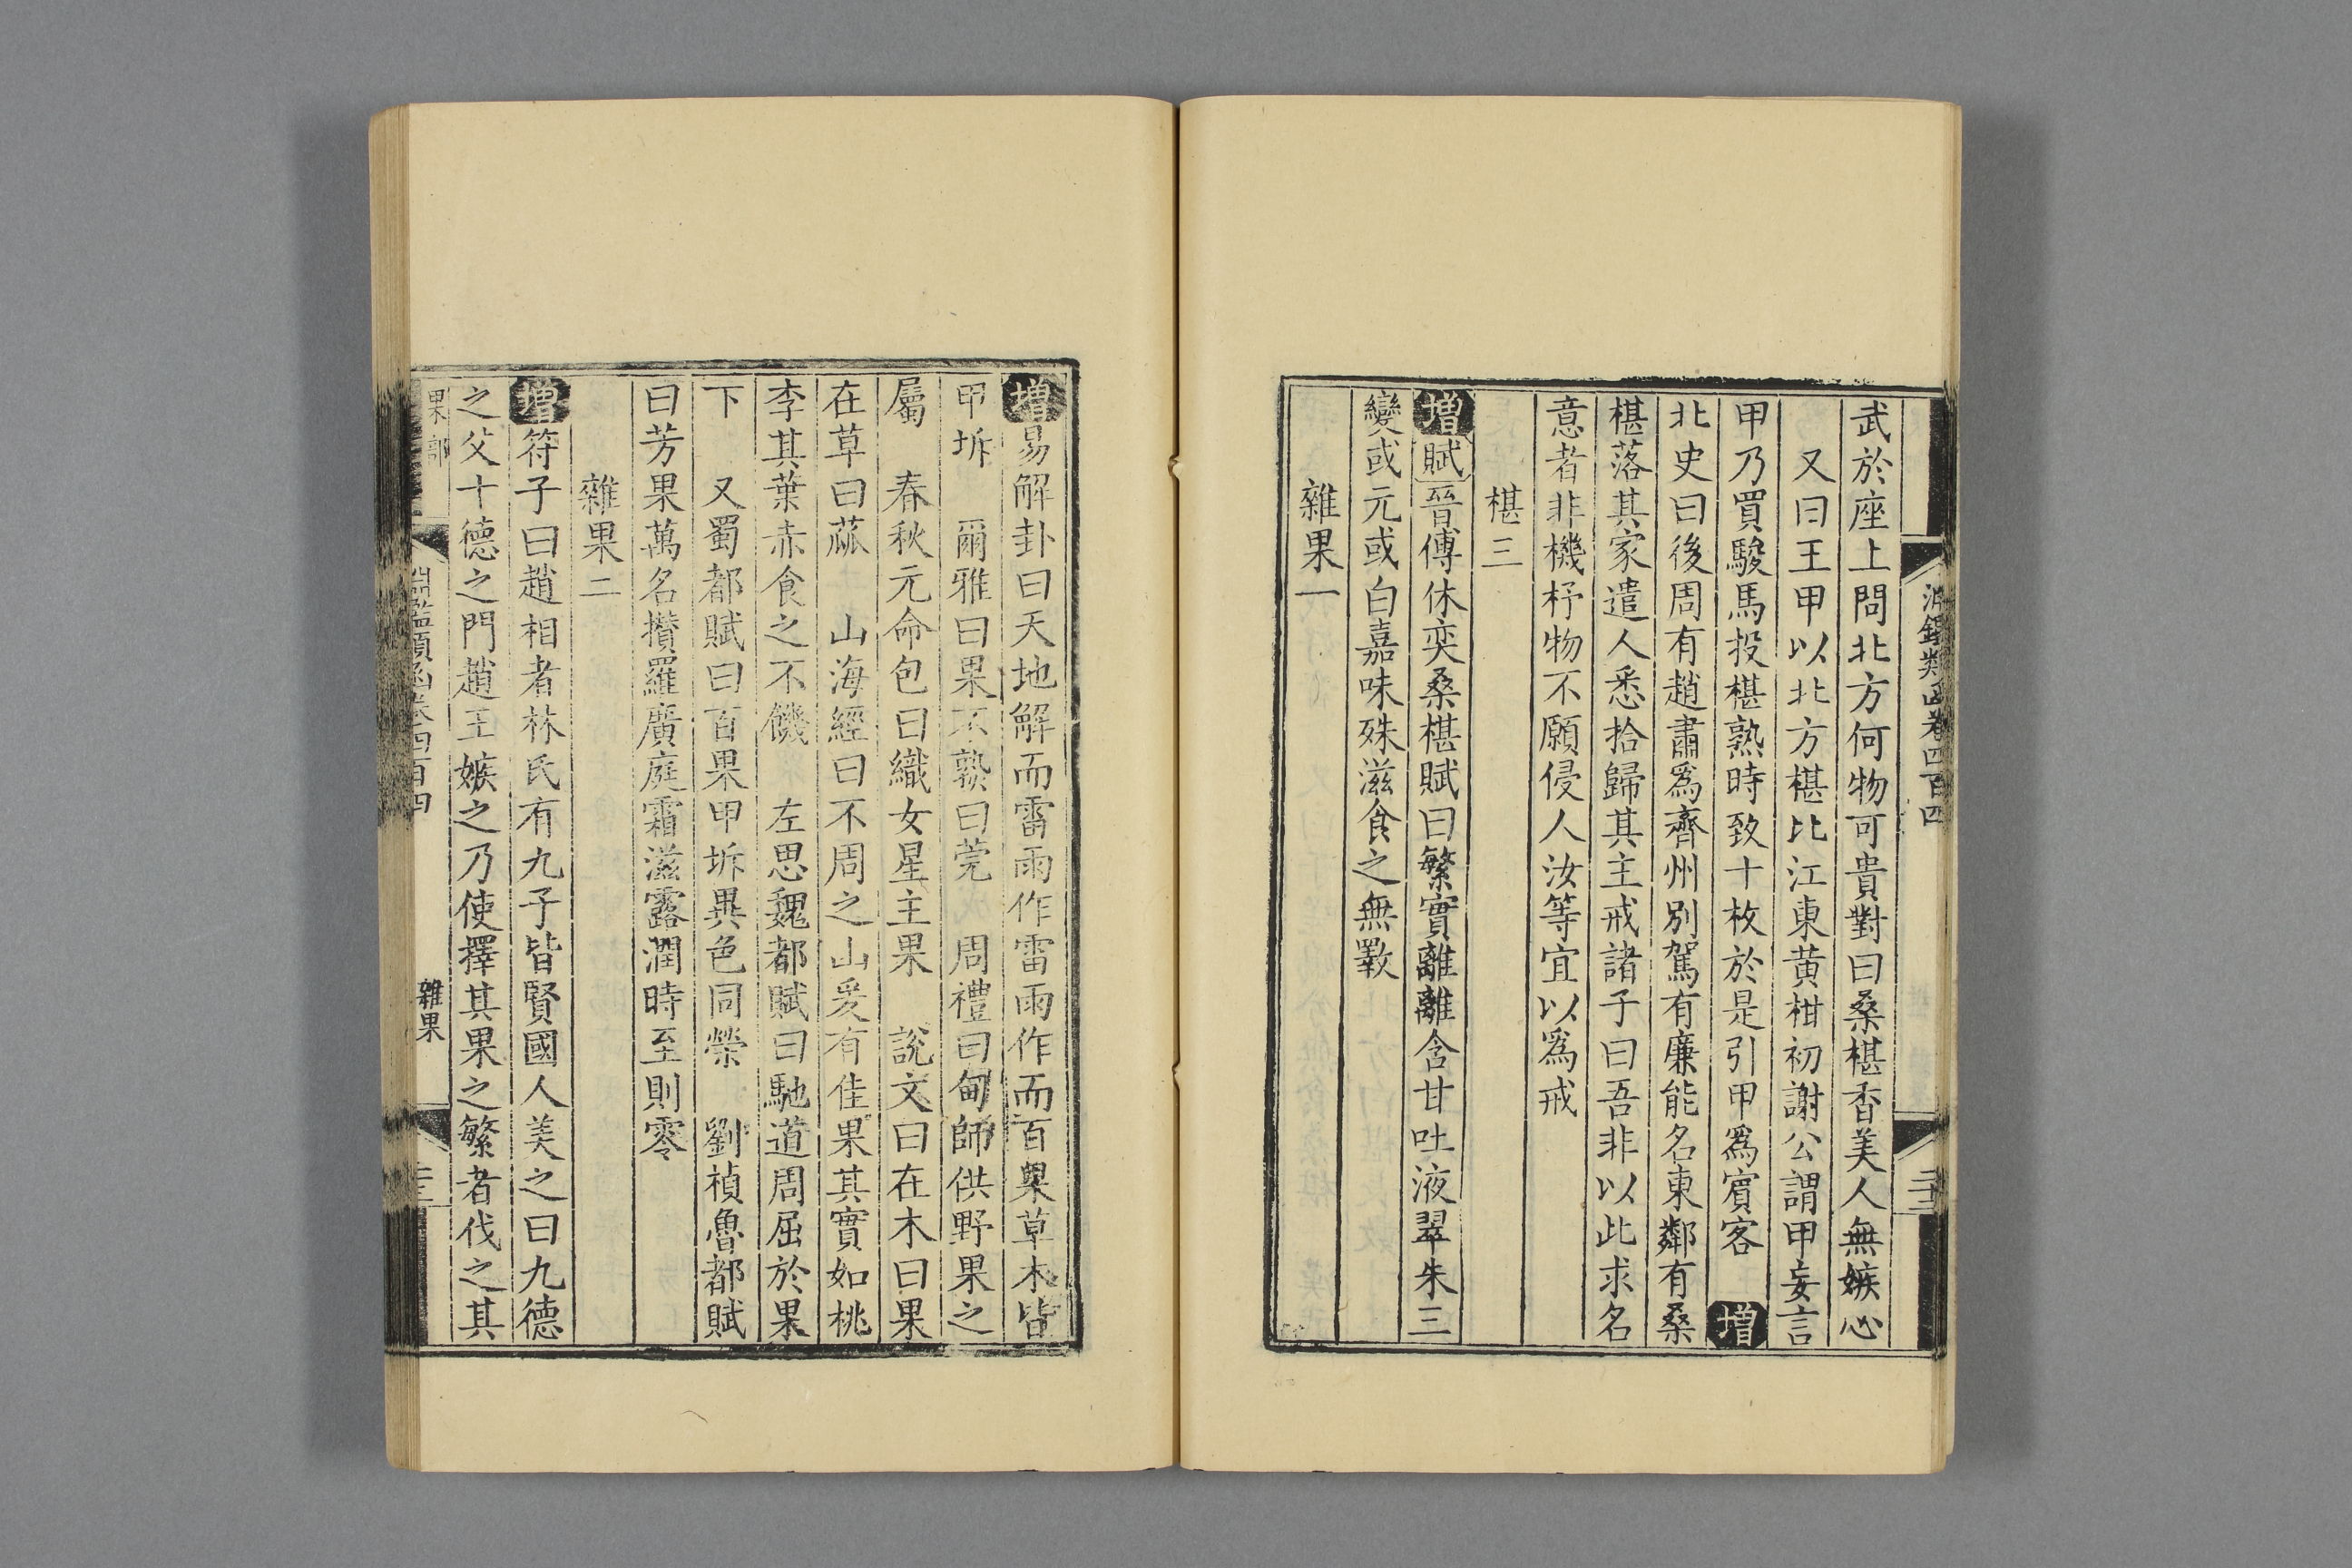 淵鑑類函卷四百四
二十二
武於座上問北方何物可貴對曰桑椹香美人無嫉心
又曰王甲以北方椹比江東黄柑初謝公謂甲妄言
甲乃買駿馬投椹熟時致十枚於是引甲爲賓客 增
北史曰後周有趙肅爲齊州別駕有廉能名東鄰有桑
椹落其家遣人悉拾歸其主戒諸子曰吾非以此求名
意者非機杼物不願侵人汝等宜以爲戒
椹三
增賦晉傅休奕桑椹賦曰繁實離離含甘吐液翠朱三
變或元或白嘉味殊滋食之無斁
雜果一
增易解卦曰天地解而雷雨作雷雨作而百果草木皆
甲坼 爾雅曰果不熟曰荒 周禮曰甸師供野果之
屬 春秋元命包曰織女星主果 說文曰在木曰果
在草曰蓏 山海經曰不周之山爰有佳果其實如桃
李其葉赤食之不饑 左思魏都賦曰馳道周屈於果
下 又蜀都賦曰百果甲坼異色同榮 劉禎魯都賦
曰芳果萬名攢羅廣庭霜滋露潤時至則零
雜果二
增符子曰趙相者林氏有九子皆賢國人美之曰九德
之父十德之門趙王嫉之乃使擇其果之繁者伐之其
果部
淵鑑類函卷四百四
雜果